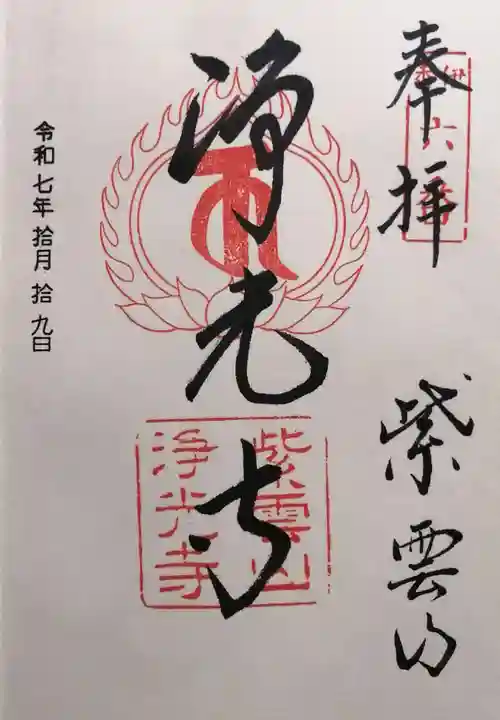 奉拝
六番
紫雲山
浄光寺
紫雲山
浄光寺
令和七年拾月拾九日